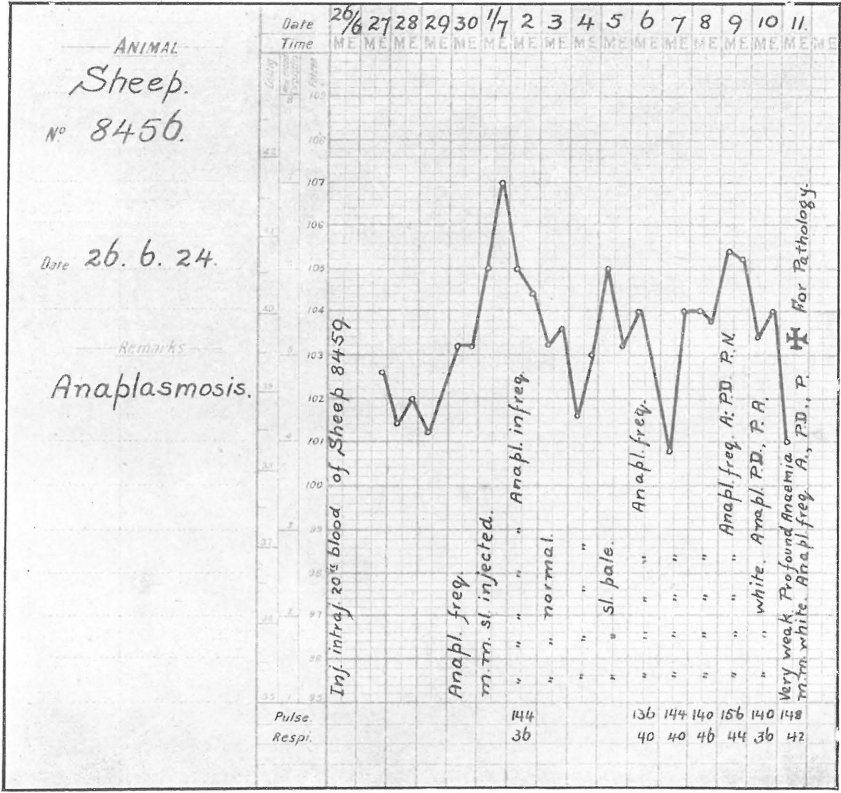 ANIMAL
Sheep.
Nº 8456.
Date 26. 6. 24.
Remarks
Anaplasmosis.
Date 26/6 27 28 29 30 1/7 2 3 4 5 6 7 8 9 10 11.
Time M E M E M E M E M E M E M E M E M E M E M E M E M E M E M E M E M E
109
108
107
106
105
104
103
102
101
100
99
98
97
96
95
Inj. intraj. 20cc blood of Sheep 8459.
Anapl. freq.
m.m. sl. injected.
" " " " " Anapl. infreq.
" " normal.
" " " "
" " sl. pale.
" " " " Anapl. freq.
" " " "
" " " "
" " " " Anapl. freq. A: P.D. P.N.
" " white. Anapl. P.D., P. A.
Very weak. Profound Anaemia
m.m. white. Anapl. freq. A., P.D., P.
✠ For Pathology.
Pulse. 144 136 144 140 156 140 148
Respi. 36 40 40 46 44 36 42